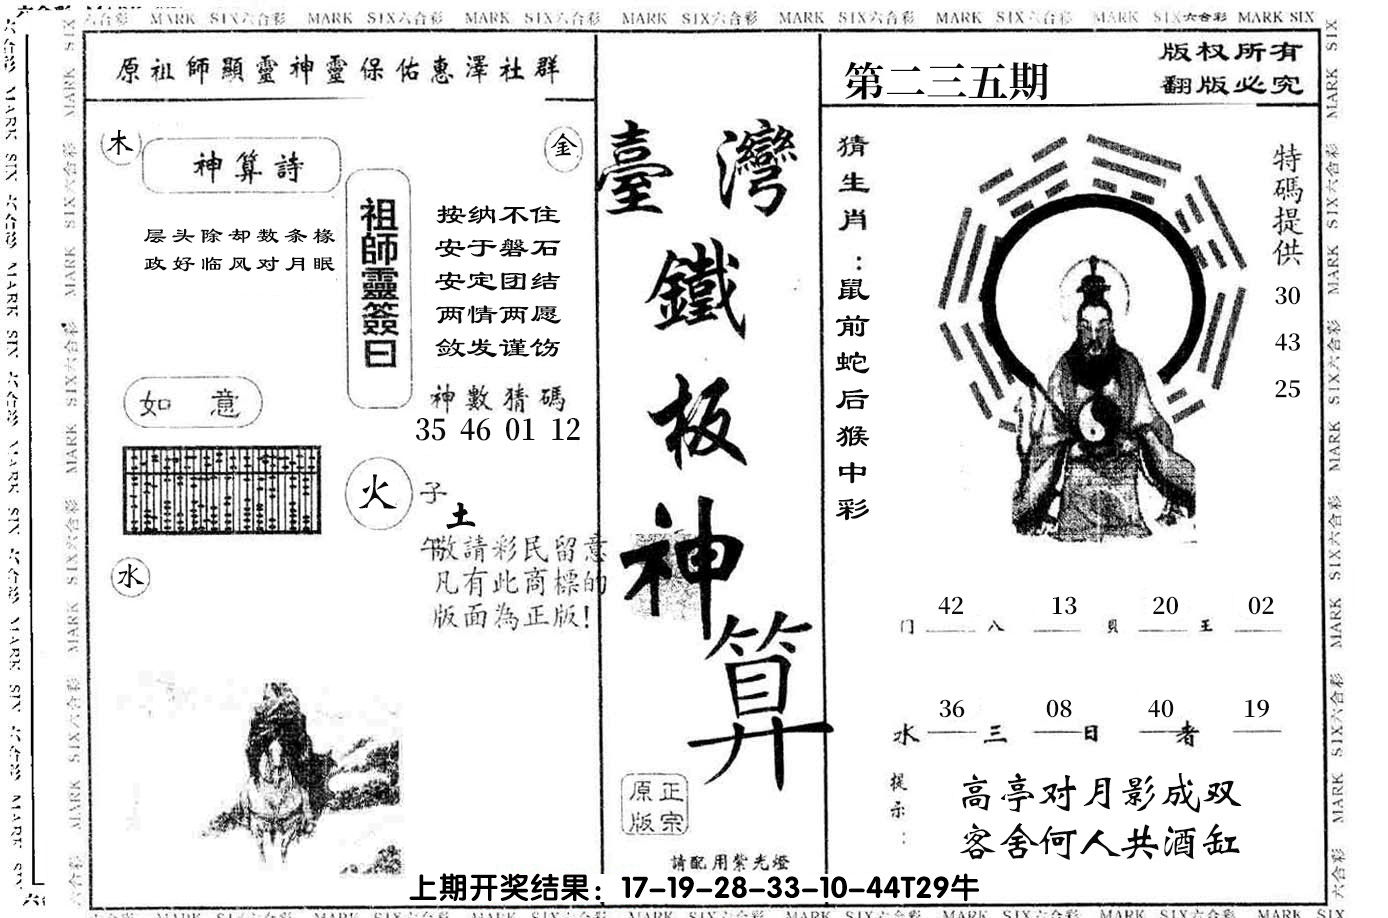 六合彩 MARK SIX六合彩 MARK SIX六合彩 MARK SIX六合彩 MARK SIX六合彩 MARK SIX六合彩 MARK SIX六合彩 MARK SIX六合彩 MARK SIX
原祖師顯靈神靈保佑惠澤社群
木
金
神算詩
层头除却数条椽
政好临风对月眠
祖師靈簽曰
按纳不住
安于磐石
安定团结
两情两愿
敛发谨饬
神數猜碼
35 46 01 12
如 意
火
子
土
午
水
敬請彩民留意
凡有此商標的
版面為正版!
臺灣
鐵
板
神
算
原正
版宗
請配用紫光燈
第二三五期
版权所有
翻版必究
猜生肖:鼠前蛇后猴中彩
特碼提供
30
43
25
42 13 20 02
门 八 貝 王
36 08 40 19
水 三 日 者
提示:
高亭对月影成双
客舍何人共酒缸
上期开奖结果：17-19-28-33-10-44T29牛